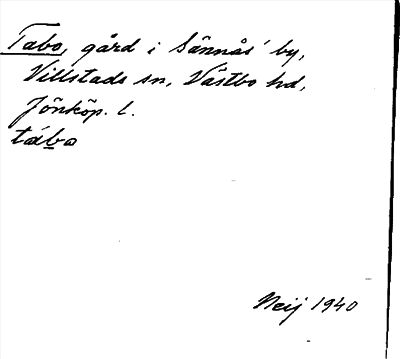 Tabo, gård i Sännås' by,
Villstads sn, Västbo hd,
Jönköp. l.
tábo
Neij 1940